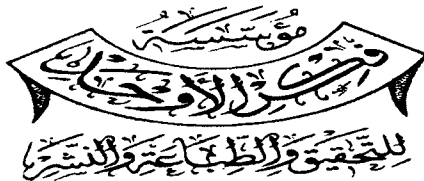 مؤسسة
فكر الأوحد
للتحقيق والطباعة والنشر